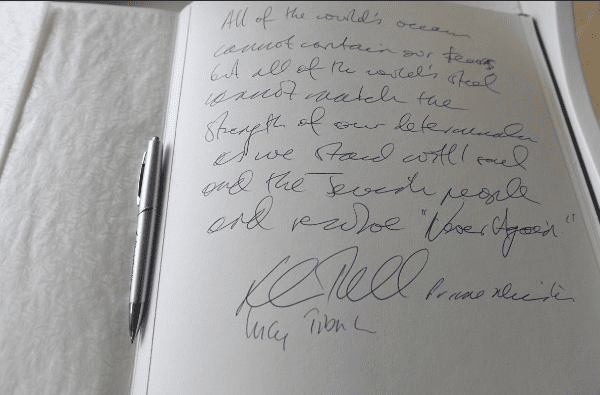 All of the world's oceans
cannot contain our tears
but all of the world's steel
cannot match the
strength of our determination
as we stand with
and the Jewish people
and resolve "Never Again."
Prime Minister
Lucy